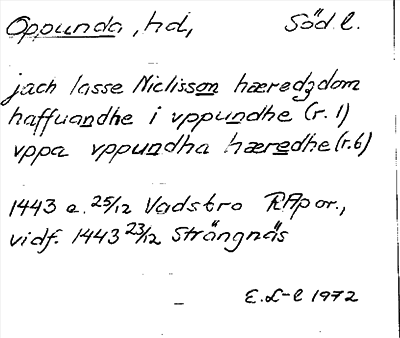 Oppunda, hd, Söd l.
jach lasse Niclisson hæredzdom
haffuandhe i vppundhe (r. 1)
vppa vppundha hæredhe (r. 6)
1443 e. 25/12 Vadstro RAp or.,
vidf. 1443 23/12 Strängnäs
E. L-l 1972